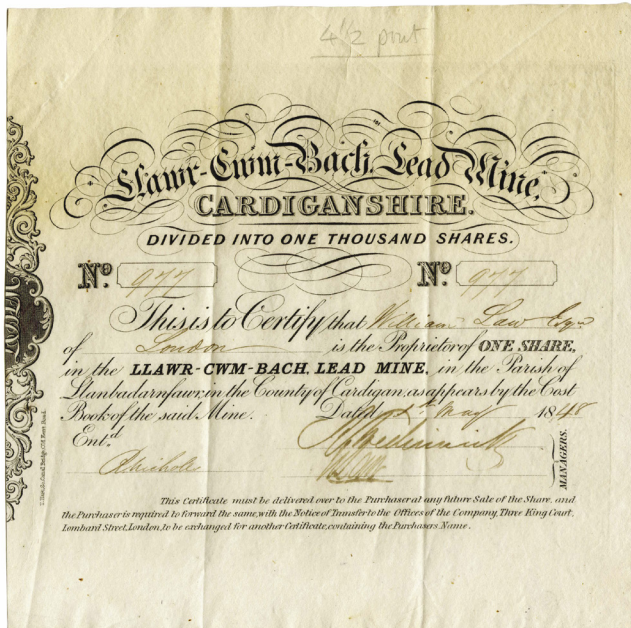 4 1/2 print
Llawr-Cwm-Bach, Lead Mine,
CARDIGANSHIRE.
DIVIDED INTO ONE THOUSAND SHARES.
No 977 No 977
This is to Certify that William Law Esqre
of London is the Proprietor of ONE SHARE,
in the LLAWR-CWM-BACH, LEAD MINE, in the Parish of
Llanbadarnfawr, in the County of Cardigan, as appears by the Cost
Book of the said Mine. Dated May 1848
Entd
MANAGERS.
This Certificate must be delivered over to the Purchaser at any future Sale of the Share, and
the Purchaser is required to forward the same, with the Notice of Transfer to the Offices of the Company, Three King Court,
Lombard Street, London, to be exchanged for another Certificate, containing the Purchasers Name.